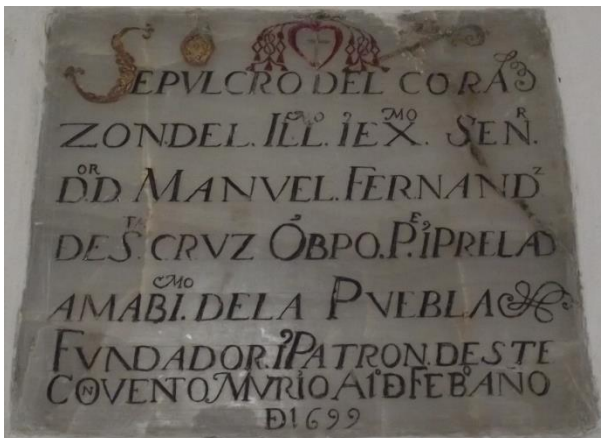 SEPVLCRO DEL CORA
ZON.DEL. ILL.MO I EX.MO SEÑ.R
D.OR D. MANVEL. FERNAND.Z
DE S.TA CRVZ ÓBPO. P.E I PRELAD
AMABI.MO DE LA PVEBLA
FVNDADOR. I PATRON. DESTE
COVENTO MVRIO A 1º Đ FEB.O AÑO
Đ 1699